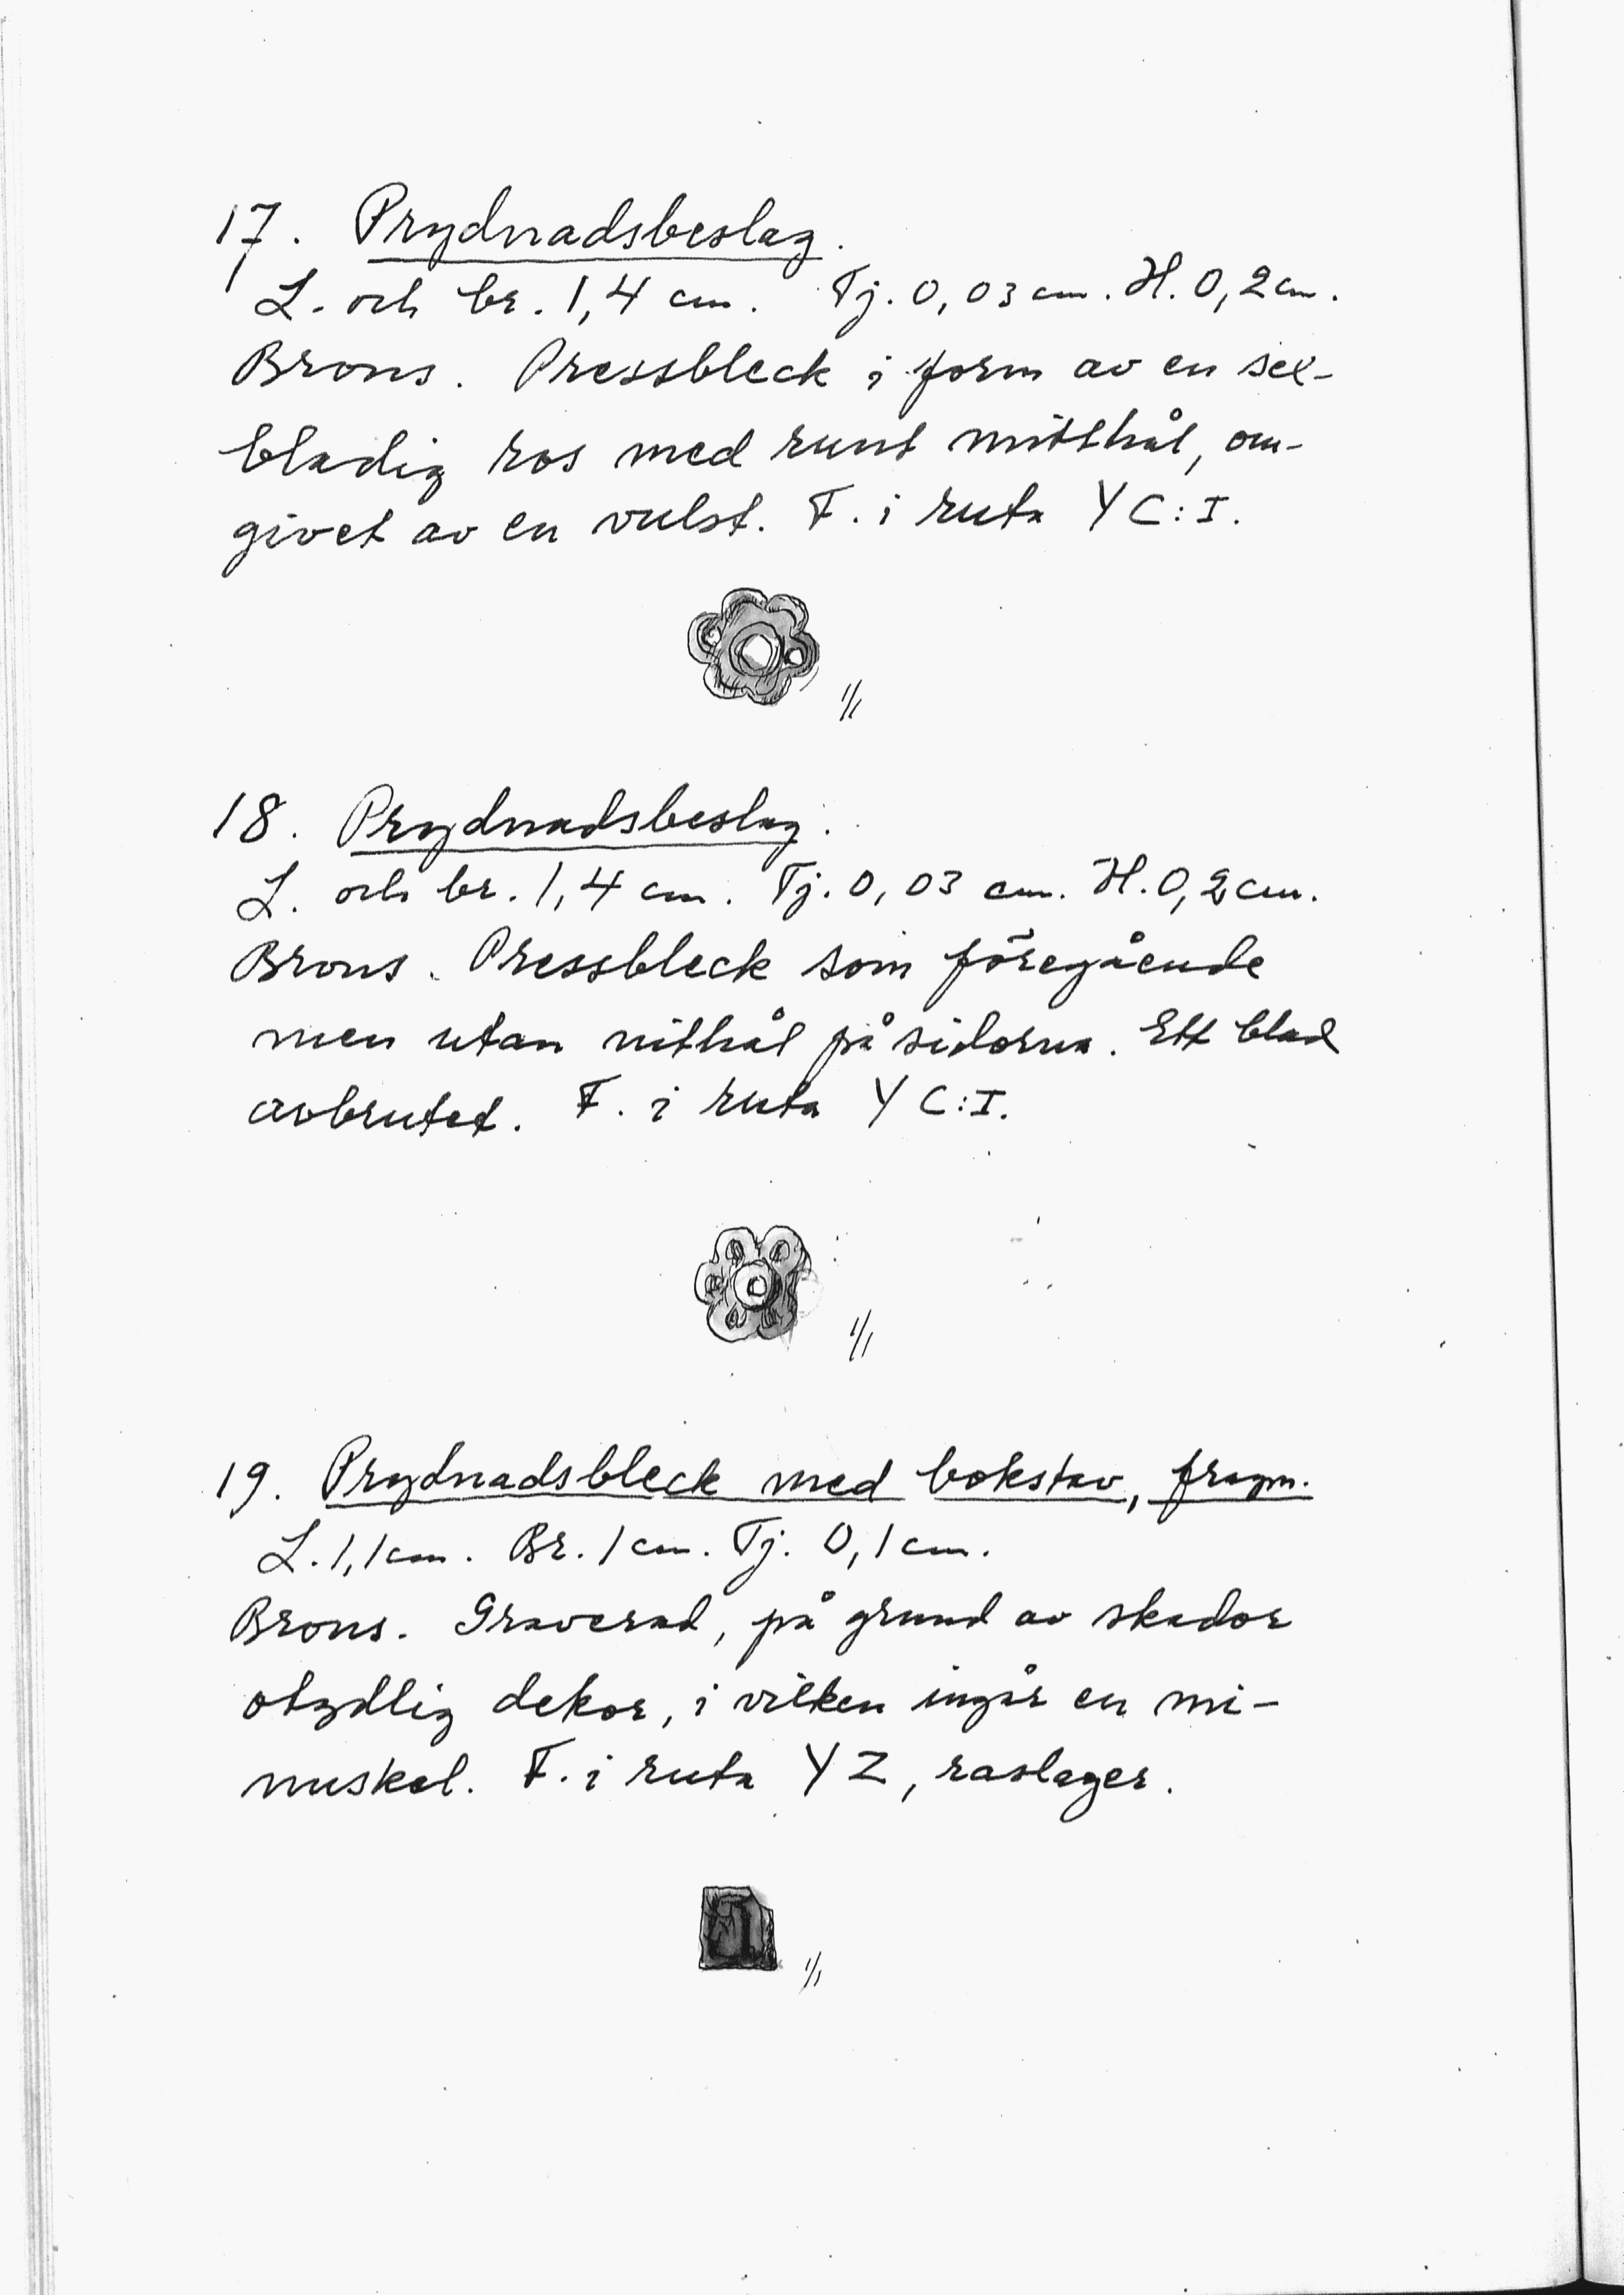 17. Prydnadsbeslag.
L. och br. 1,4 cm. Tj. 0,03 cm. H. 0,2 cm.
Brons. Pressbleck i form av en sex-
bladig ros med runt mitthål, om-
givet av en vulst. F. i ruta YC:I.
1/1
18. Prydnadsbeslag.
L. och br. 1,4 cm. Tj. 0,03 cm. H. 0,2 cm.
Brons. Pressbleck som föregående
men utan nithål på sidorna. Ett blad
avbrutet. F. i ruta YC:I.
1/1
19. Prydnadsbleck med bokstav, fragm.
L. 1,1 cm. Br. 1 cm. Tj. 0,1 cm.
Brons. Graverad, på grund av skador
otydlig dekor, i vilken ingår en mi-
nuskel. F. i ruta YZ, raslager.
1/1